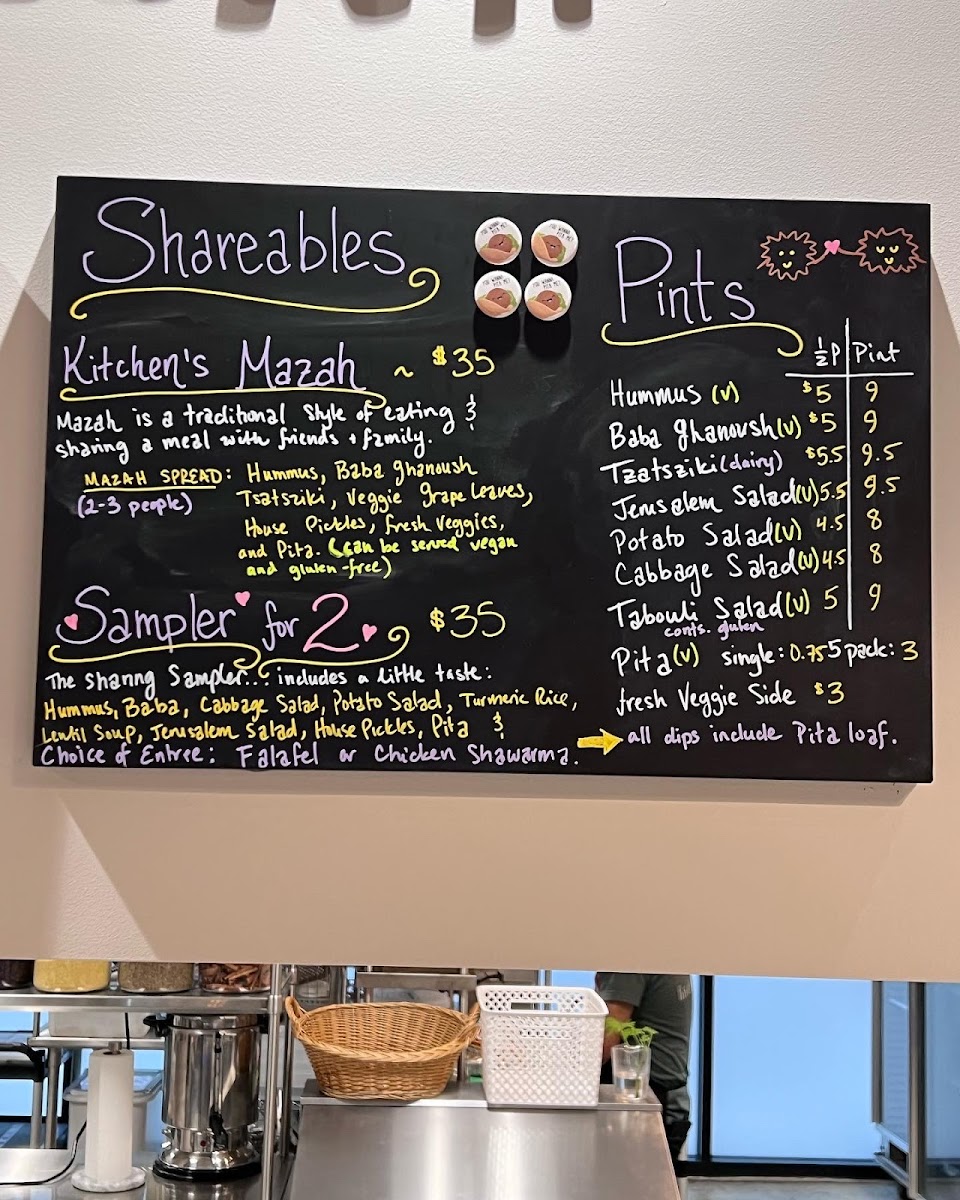 Shareables
Kitchen's Mazah ~ $35
Mazah is a traditional style of eating &
sharing a meal with friends + family.
MAZAH SPREAD: Hummus, Baba ghanoush
(2-3 people) Tsatsziki, Veggie grape leaves,
House Pickles, fresh veggies,
and Pita. (can be served vegan
and gluten-free)
Sampler for 2 $35
The sharing Sampler... includes a little taste:
Hummus, Baba, Cabbage Salad, Potato Salad, Turmeric Rice,
Lentil Soup, Jerusalem Salad, House Pickles, Pita &
Choice of Entree: Falafel or Chicken Shawarma.
YOU WANNA PITA ME?
YOU WANNA PITA ME?
YOU WANNA PITA ME?
YOU WANNA PITA ME?
Pints
½P Pint
Hummus (v) $5 9
Baba ghanoush (v) $5 9
Tzatsziki (dairy) $5.5 9.5
Jerusalem Salad (v) 5.5 9.5
Potato Salad (v) 4.5 8
Cabbage Salad (v) 4.5 8
Tabouli Salad (v) 5 9
conts. gluten
Pita (v) single: 0.75 5 pack: 3
fresh Veggie Side $3
all dips include Pita loaf.